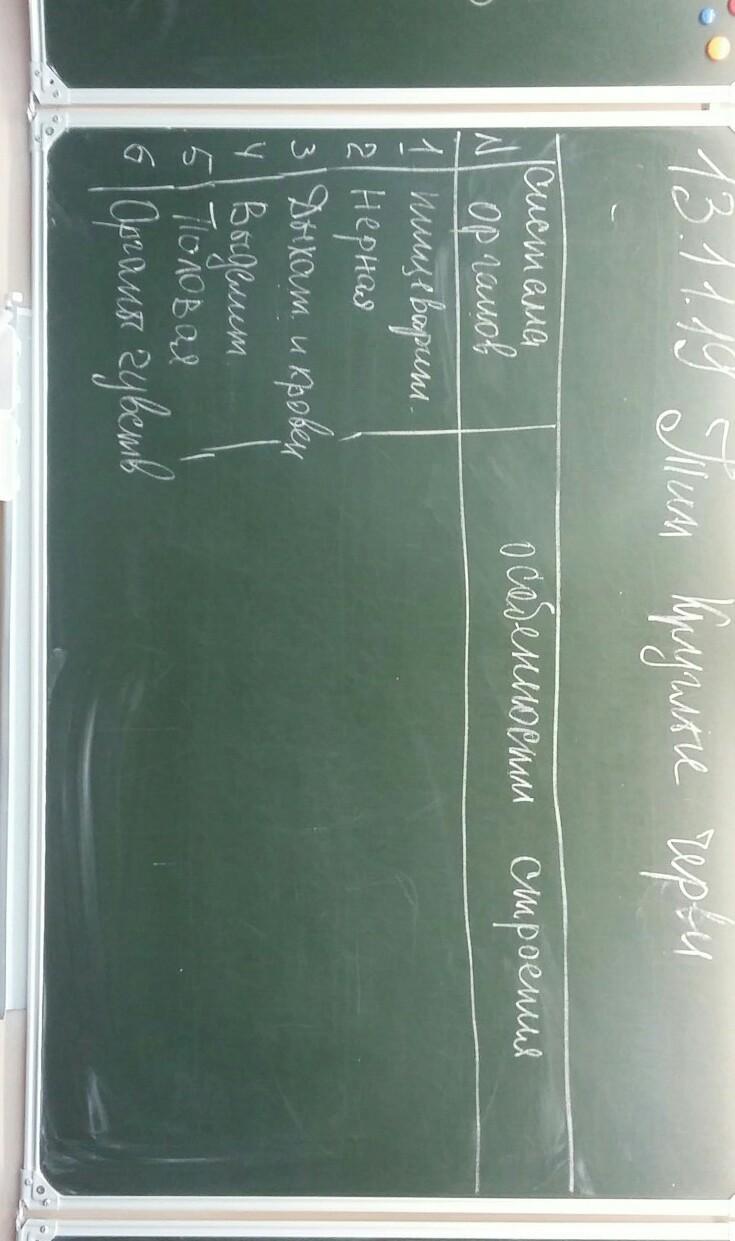 13.11.19 Тип Круглые черви
N система органов особенности строения
1 пищеварит.
2 Нерная
3 Дыхат и кровен
4 Выделит.
5 Половая
6 Органы чувств